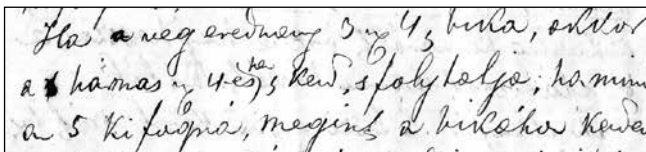 Ha a végeredmény 3 vagy 4, bika, akkor
a hármas vagy 4-es, ha kezd, s folytatja, ha mind
az 5 kifogná, megint a bikához kezd